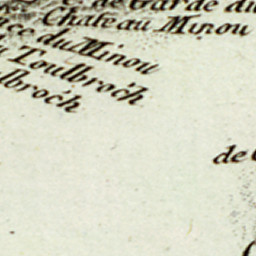 de Garde du
Chateau Minou
du Minou
Toulbroc'h
lbroc'h
de